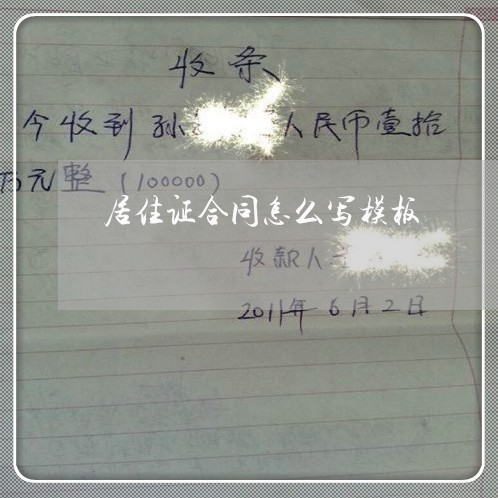 收条
今收到孙 人民币壹拾
万元整(100000)
居住证合同怎么写模板
收款人
2011年6月2日